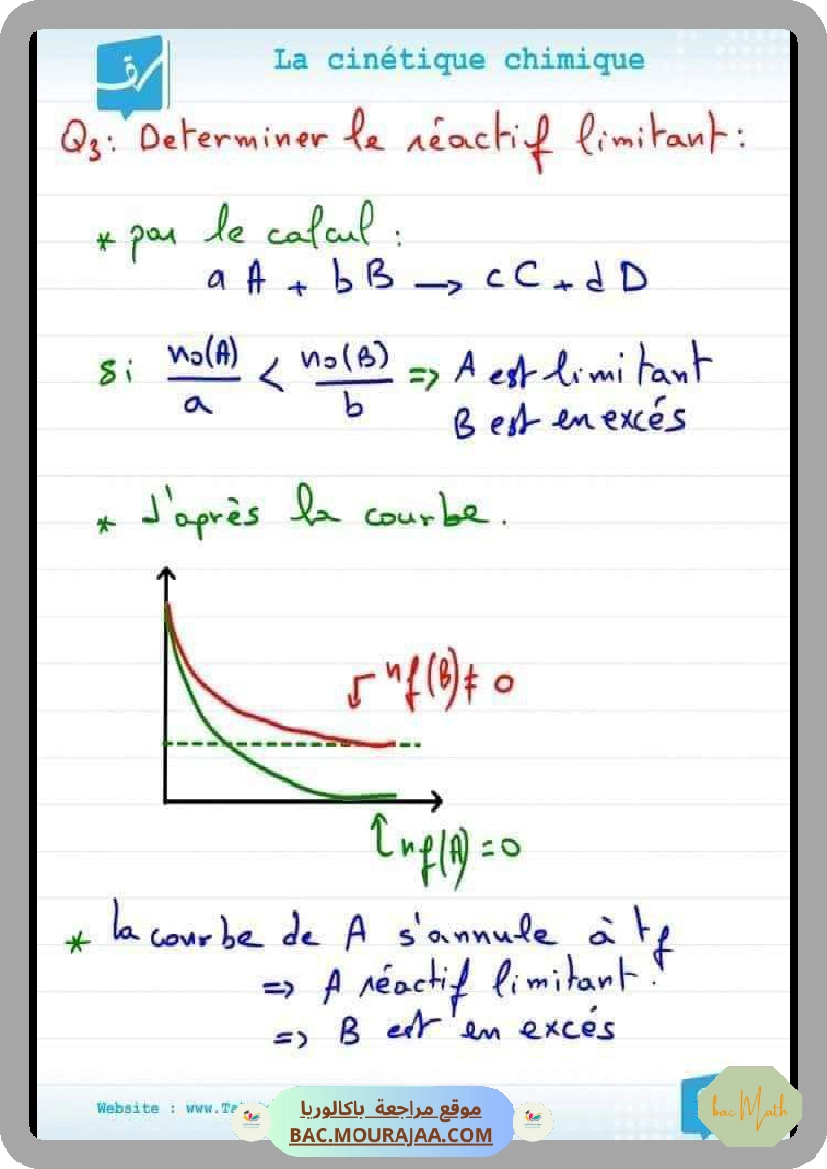 La cinétique chimique
Q3: Determiner le réactif limitant:
* par le calcul:
a A + b B → c C + d D
Si n0(A)/a < n0(B)/b => A est limitant
B est en excés
* d'après la courbe.
nf(B) ≠ 0
nf(A) = 0
* la courbe de A s'annule à tf
=> A réactif limitant.
=> B est en excés
Website : www.Ta
موقع مراجعة باكالوريا
BAC.MOURAJAA.COM
bac Math